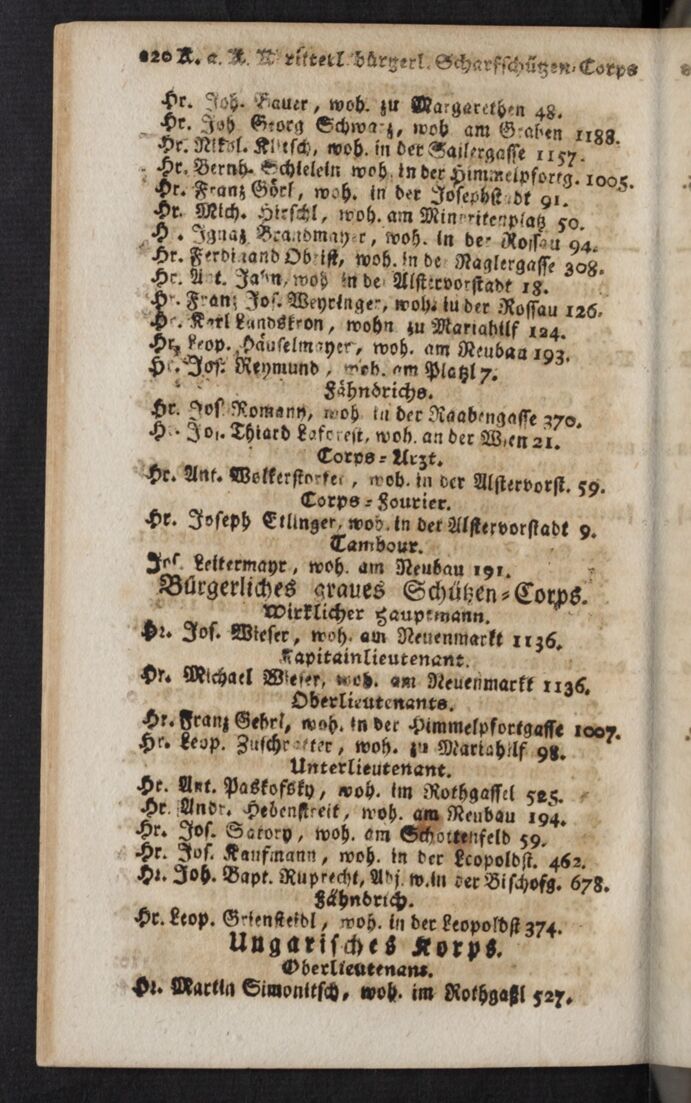 220 K. a. K. bürgerl. Scharfschützen-Corps
Hr. Joh. Bauer, woh. zu Margarethen 48.
Hr. Joh Georg Schwarz, woh am Graben 1188.
Hr. Nikol. woh. in der Sailergasse 1157.
Hr. Bernh. Schielein woh. in der Himmelpfortg. 1005.
Hr. Franz Görl, woh. in der Josephstadt 91.
Hr. Mich. Hirschl, woh. am Minoritenplatz 50.
Hr. Ignaz Brandmayer, woh. in der Rossau 94.
Hr. Ferdinand Obrist, woh. in de Naglergasse 308.
Hr. Ant. Jahn, woh in de Alstervorstadt 18.
Hr. Franz Jos. Weyringer, woh. in der Rossau 126.
Hr. Karl Landskron, wohn zu Mariahilf 124.
Hr. Leop. Häuselmayer, woh. am Neubau 193.
Hr. Jos. Reymund, woh. am Platzl 7.
Fähndrichs.
Hr. Jos Romann, woh in der Raabengasse 370.
Hr. Jos. Thiard Laforest, woh. an der Wien 21.
Corps-Arzt.
Hr. Ant. Wolkerstorfer, woh. in der Alstervorst. 59.
Corps-Fourier.
Hr. Joseph Etlinger, woh. in der Alstervorstadt 9.
Tambour.
Jos. Leitermayr, woh. am Neubau 191.
Bürgerliches graues Schützen-Corps.
Wirklicher Hauptmann.
Hr. Jos. Wieser, woh. am Neuenmarkt 1136.
Kapitainlieutenant.
Hr. Michael Wieser, woh. am Neuenmarkt 1136.
Oberlieutenants.
Hr. Franz Gehrl, woh. in der Himmelpfortgasse 1007.
Hr. Leop. Zuschrotter, woh. zu Mariahilf 98.
Unterlieutenant.
Hr. Ant. Paskofsky, woh. im Rothgassel 525.
Hr. Andr. Hebenstreit, woh. am Neubau 194.
Hr. Jos. Satory, woh. am Schottenfeld 59.
Hr. Jos. Kaufmann, woh. in der Leopoldst. 462.
Hr. Joh. Bapt. Ruprecht, Adj. w. in der Bischofg. 678.
Fähndrich.
Hr. Leop. Griensteidl, woh. in der Leopoldst 374.
Ungarisches Korps.
Oberlieutenant.
Hr. Martin Simonitsch, woh. im Rothgaßl 527.